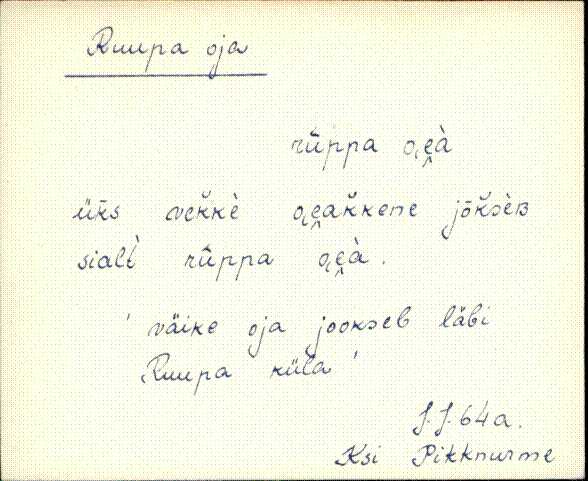 Ruupa oja
rūppa o̭e̮à
ük̆s vek̆kè o̭e̮ak̆kene jōk̆sèʙ
sialt̀ rūppa o̭e̮à.
' väike oja jookseb läbi
Ruupa küla '
J.J. 64 a.
Ksi Pikknurme